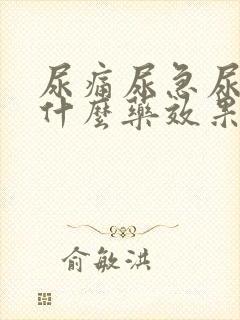 尿痛尿急尿
什麼藥效果
俞敏洪